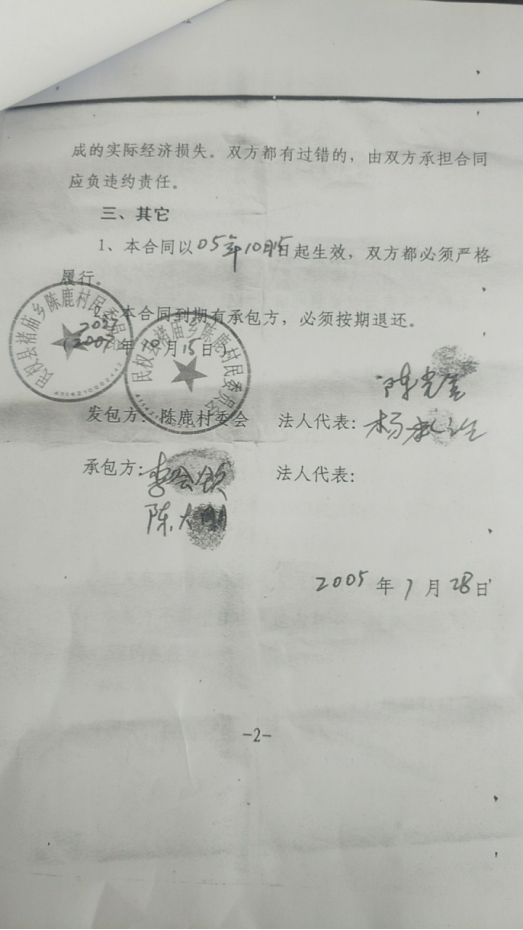 成的实际经济损失。双方都有过错的，由双方承担合同
应负违约责任。
三、其它
1、本合同以05年10月15日起生效，双方都必须严格
履行。
本合同到期有承包方，必须按期退还。
年10月15日
民权县褚庙乡陈鹿村民委员会
民权县褚庙乡陈鹿村民委员会
发包方：陈鹿村委会 法人代表：
杨
承包方：李会 法人代表：
陈大
2005年7月28日
-2-